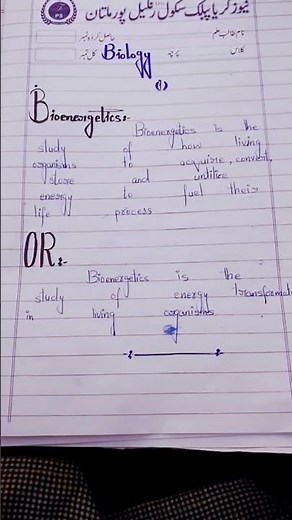 نیوز کریا پبلک سکول رنگیل پور ملتان
نام طالب علم حاصل کردہ نمبر
کلاس پرچہ کل نمبر
Biology
(1)
Bioenergetics:-
Bioenergetics is the
study of how living
organisms to acquire, convert,
store and untilice
energy to fuel their
life process
OR:-
Bioenergetics is the
study of energy transformat
in living organisms